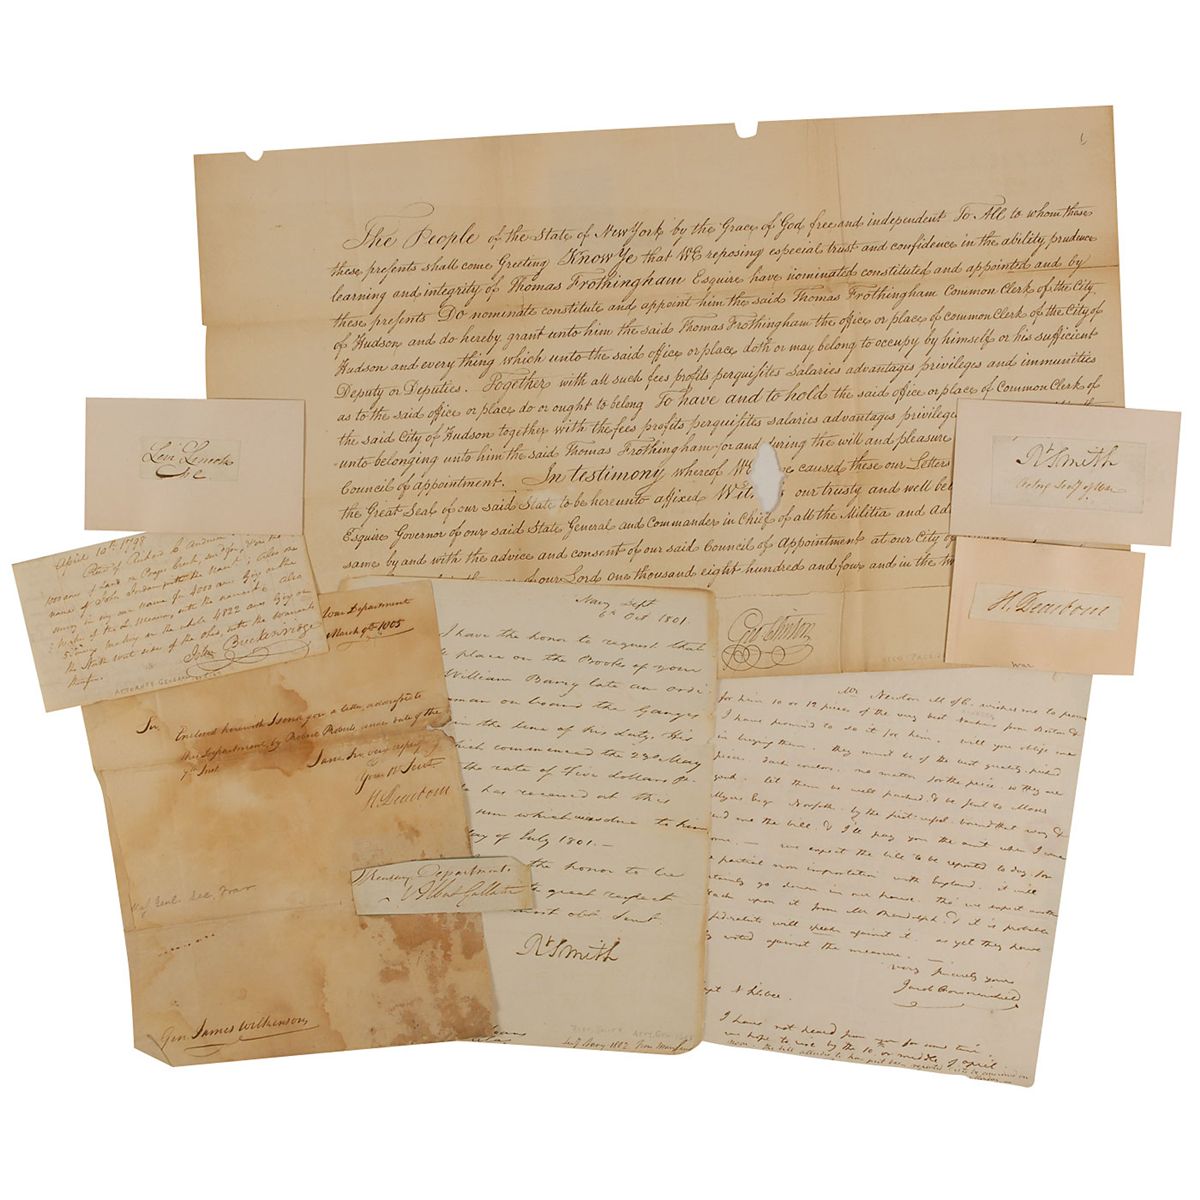 The People of the State of New York by the Grace of God free and independent To All to whom these
presents shall come Greeting Know Ye that WE reposing especial trust and confidence in the ability prudence
learning and integrity of Thomas Frothingham Esquire have nominated constituted and appointed and by
these presents Do nominate constitute and appoint him the said Thomas Frothingham Common Clerk of the City
of Hudson and do hereby grant unto him the said Thomas Frothingham the office or place of common Clerk of the City of
Hudson and every thing which unto the said office or place doth or may belong to occupy by himself or his sufficient
Deputy or Deputies. Together with all such fees profits perquisites salaries advantages privileges and immunities
as to the said office or place do or ought to belong To have and to hold the said office or place of Common Clerk of
the said City of Hudson together with the fees profits perquisites salaries advantages
unto belonging unto him the said Thomas Frothingham for and during the will and pleasure
Council of appointment. In testimony whereof WE caused these our Letters
the Great Seal of our said State to be hereunto affixed our trusty and well
Esquire Governor of our said State General and Commander in Chief of all the Militia and
same by and with the advice and consent of our said Council of Appointment at our City of
of our Lord one thousand eight hundred and four and in the
Geo Clinton
Levi Lincoln
Rt Smith
Acting Secy of War
H. Dearborn
War
April 10th 1798
1000 acres of Land on
name of John
in my own name for 4000 acres
on the whole 4822 acres
the North west side of the Ohio, with the warrants
John Breckenridge
ATTORNEY GENERAL
War Department
March 9th 1805
Sir,
Enclosed herewith I send you a letter, addressed to
this Department by Robert
7th Inst.
I am, Sir, very respecty
Your Ob Servt
H. Dearborn
Maj Genl. Sec, War
Gen James Wilkinson,
Treasury Department
Albert Gallatin
Navy Dept
6 Oct 1801.
I have the honor to request that
place on the Books of your
William Barry late an ordi
man on board the Ganges
in the time of his duty. His
which commenced the 23d May
the rate of Five dollars P.
has received at this
sum which was due to him
day of July 1801.—
the honor to be
great respect
most obt. Servt.
Rt Smith
Mr Newton M of C. wishes me to procure
for him 10 or 12 pieces of the very best Nankin from Boston &
I have promised to do it for him. will you oblige me
in buying them. they must be of the best quality,
pieces. dark colors. no matter for the price. so they are
good. let them be well packed & be sent to Moses
Myers Esqr Norfolk. by the first vessel bound that way &
send me the bill & I'll pay you the amt when I come
home. — we expect the bill to be reported to day, for
a partial non importation with England. it will
certainly go down in our house. tho' we expect another
attack upon it from Mr Randolph. & it is probable
federalists will speak against it. as yet they have
voted against the measure. —
very sincerely yours
Jacob Crowninshield
I have not heard from you for some time
we hope to rise by the 10 or middle of april.